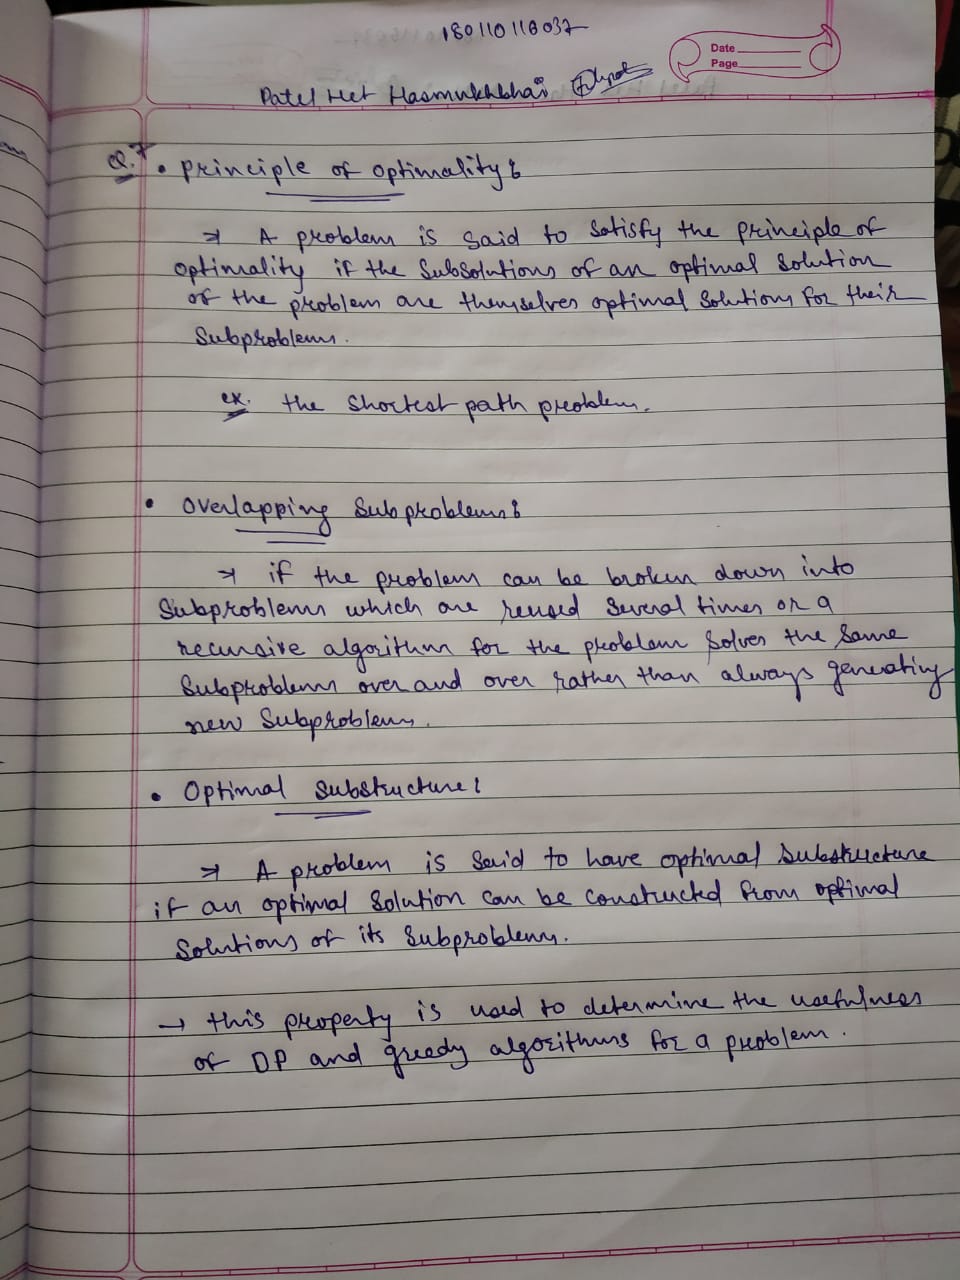 180110116037
Date
Page
Patel Het Hasmukhbhai
Q.7 • Principle of optimality:
→ A problem is said to satisfy the principle of
optimality if the subsolutions of an optimal solution
of the problem are themselves optimal solutions for their
subproblems.
ex. the shortest path problem.
• Overlapping Subproblems:
→ if the problem can be broken down into
subproblems which are reused several times or a
recursive algorithm for the problem solves the same
subproblems over and over rather than always generating
new subproblems.
• Optimal substructure:
→ A problem is said to have optimal substructure
if an optimal solution can be constructed from optimal
solutions of its subproblems.
→ this property is used to determine the usefulness
of DP and greedy algorithms for a problem.